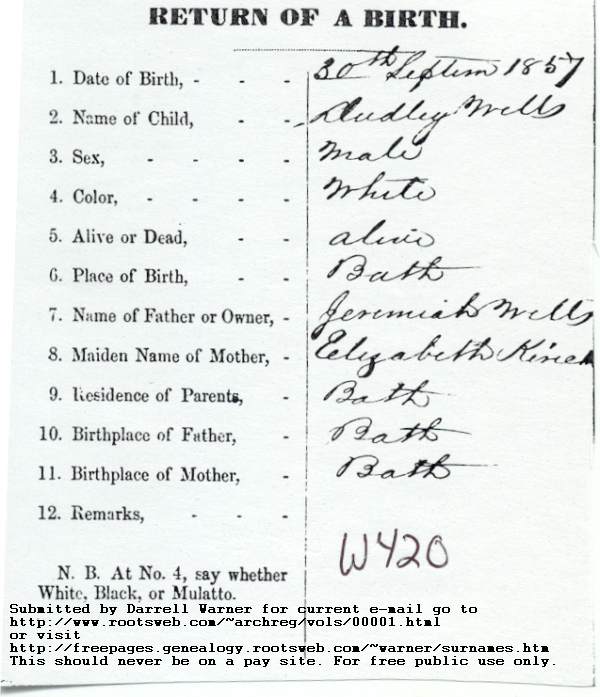 RETURN OF A BIRTH.
1. Date of Birth, - - - 30th Septem 1857
2. Name of Child, - - Dudley Wells
3. Sex, - - - - Male
4. Color, - - - - White
5. Alive or Dead, - - alive
6. Place of Birth, - - Bath
7. Name of Father or Owner, - Jeremiah Wells
8. Maiden Name of Mother, - Elizabeth
9. Residence of Parents, - Bath
10. Birthplace of Father, - Bath
11. Birthplace of Mother, - Bath
12. Remarks, - - -
W420
N. B. At No. 4, say whether
White, Black, or Mulatto.
Submitted by Darrell Warner for current e-mail go to
http://www.rootsweb.com/~archreg/vols/00001.html
or visit
http://freepages.genealogy.rootsweb.com/~warner/surnames.htm
This should never be on a pay site. For free public use only.